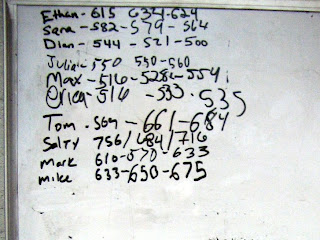 Ethan - 615 634 - 624
Sara - 582 - 579 - 564
Dian - 544 - 521 - 500
Julie 550 550 - 560
Max - 516 - 528 - 554
Erica - 516 - 533 - 535
Tom - 569 - 661 - 684
Salty 756 / 684 / 716
Mark 610 - 570 - 633
Mike 633 - 650 - 675